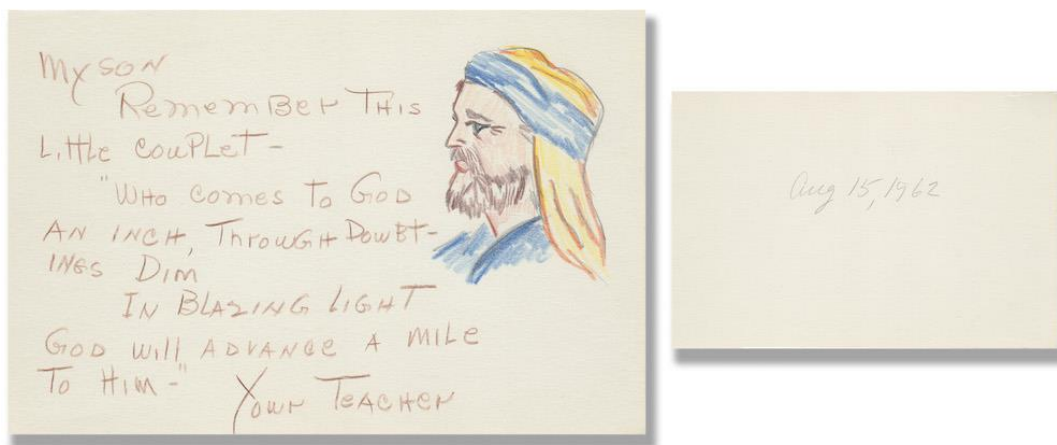 My SON
Remember THis
LittLe COUPLeT -
"WHO comes To GOD
AN INCH, THrouGH DouBT-
INGS DIM
IN BLAZING LIGHT
GOD will ADVANCE A MILe
To HIM -"
Your TeACHer
Aug 15, 1962